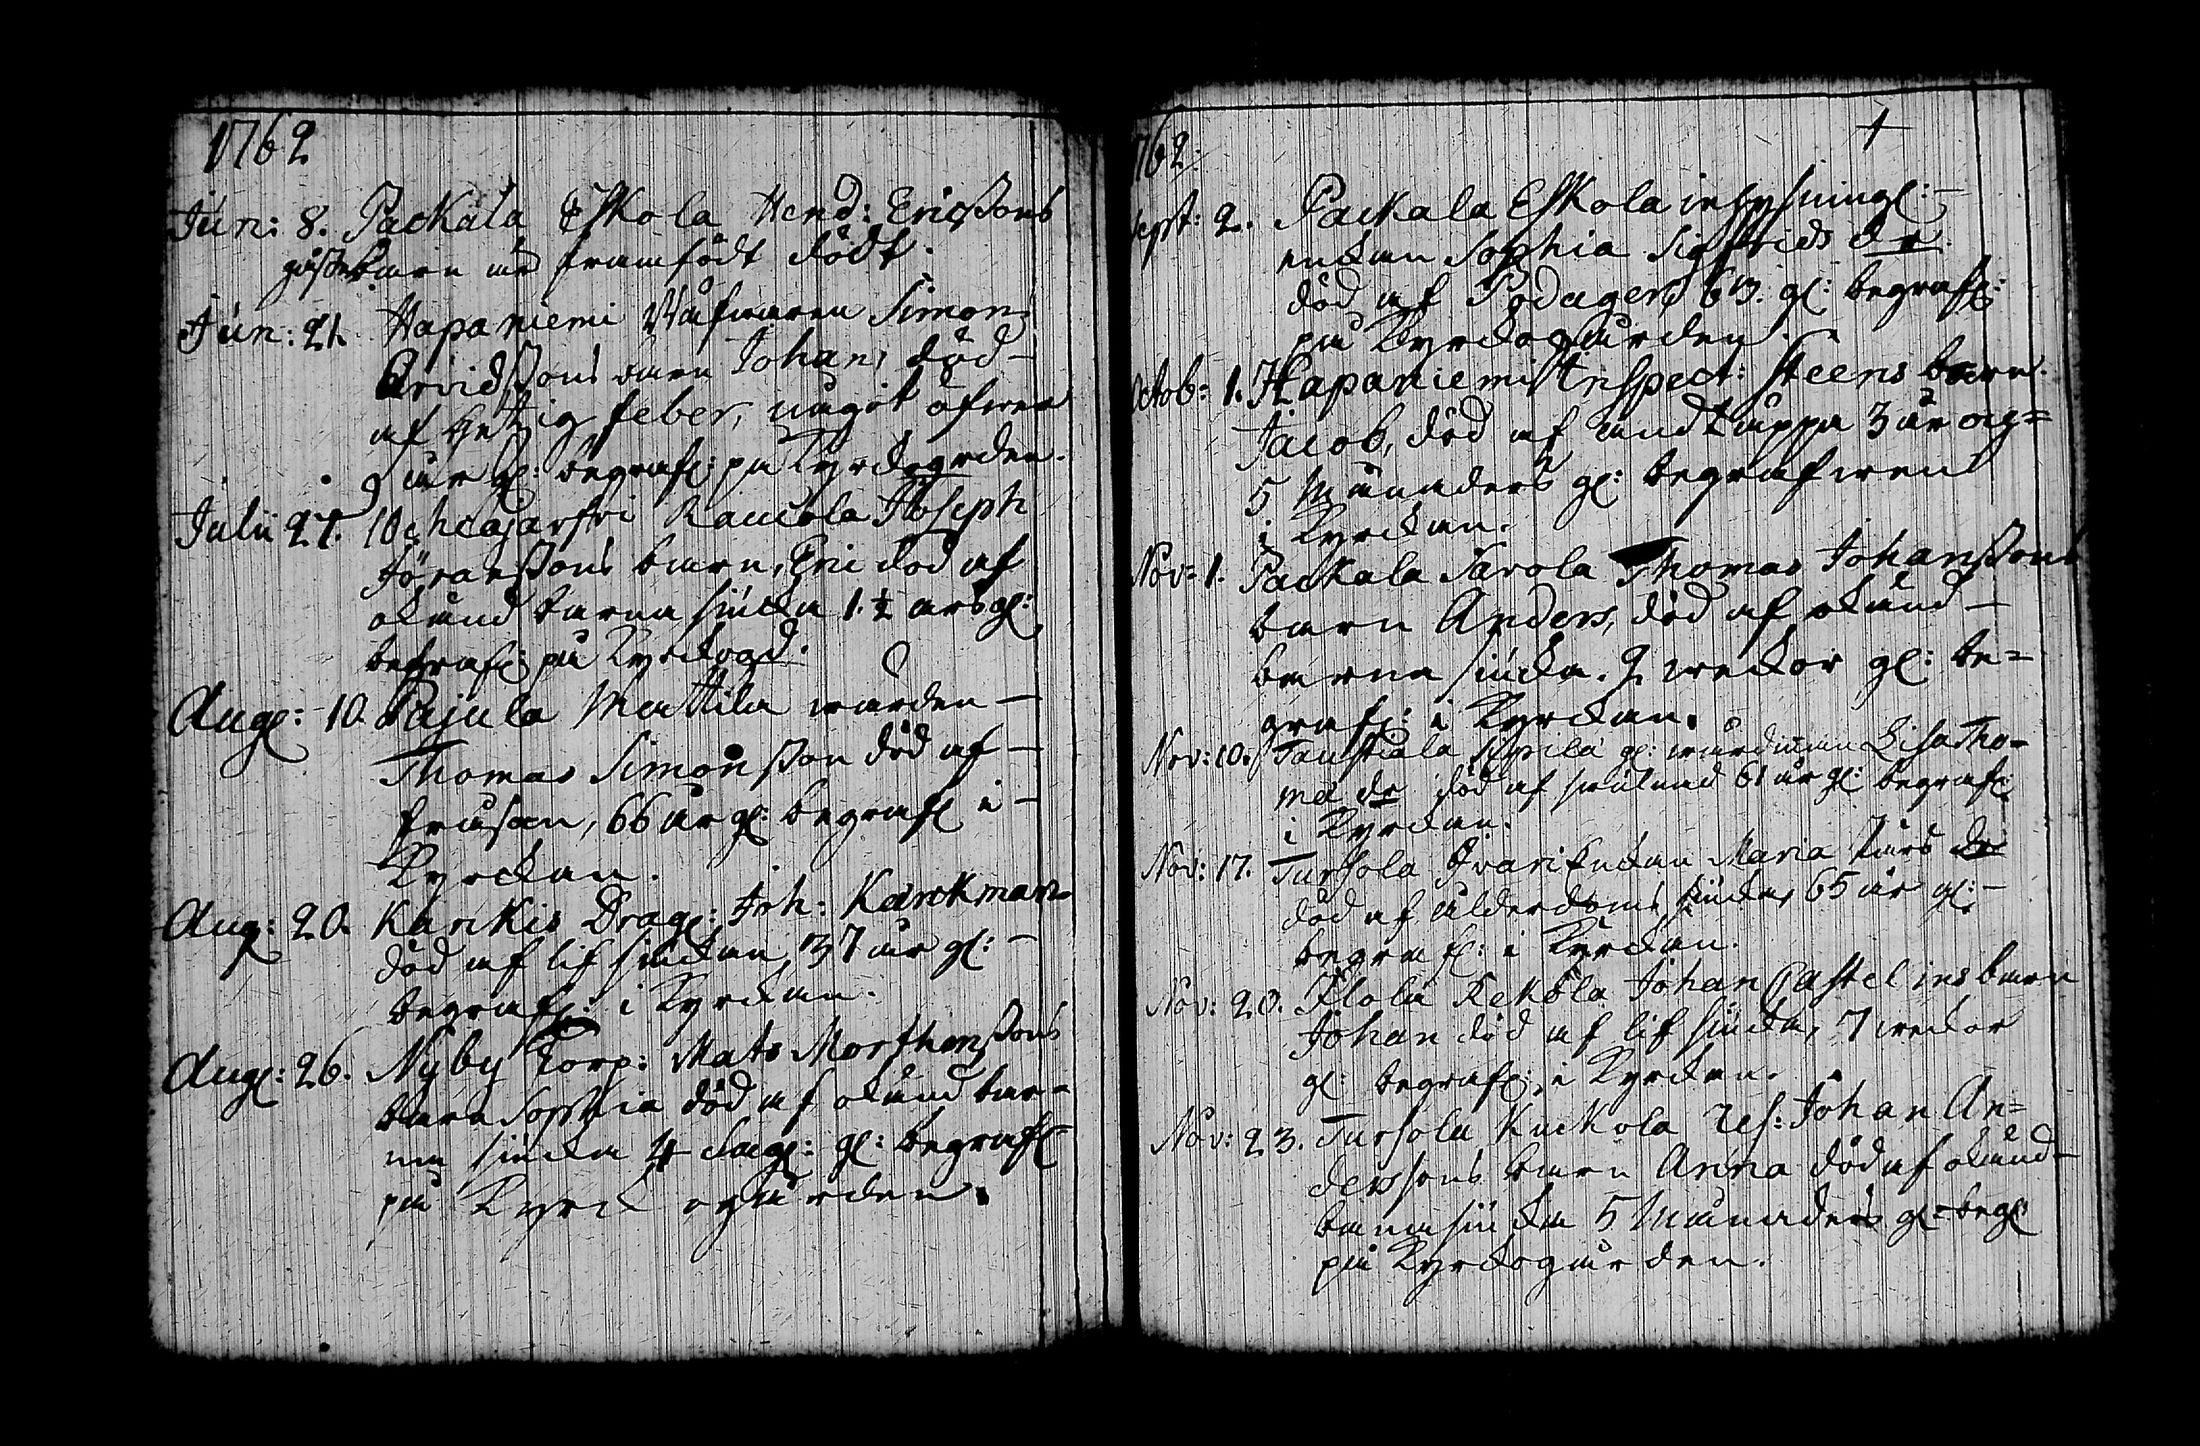 1762
Jun: 8. Packala Eskola Hend: Ericssons
gosse barn är framfödt dödt.
Jun: 21. Hapaniemi Wäfwaren Simon
Arvidssons barn Johan, död
af hetzig feber, något öfwer
9 år gl: begrafs: på Kyrckogrden.
Julii 27. Joseph
Jöranssons barn, Eric död af
okänd barna siucka 1.½ års gl:
begrafs: på Kyrckogd.
Augs: 10. Pajula Mattila wärden
Thomas Simonsson död af
frusan, 66 år gl: begrafs i
Kyrckan.
Aug: 20. Kankis Drag: Joh: Karckman
död af lifsiuckan, 37 år gl:
begrafs: i Kyrckan.
Augs: 26. Nyby Torp: Mats Morthenssons
barn Sophia död af okänd bar=
na siucka 4 dag: gl: begrafs
på Kyrckogården.
1762:
Sept: 2. Packala Eskola inhysningl:
enckan Sophia Sigfrids dr.
död af Podager, 63. gl: begrafs:
på Kyrckogården.
Octob: 1. Hapaniemi Inspect: Steens barn
Jacob, död af 3 år og=
5 Månaders gl: begrafwen
i Kyrckan.
Nov: 1. Packala Sarola Thomas Johanssons
barn Anders, död af okänd
barna siucka. 2 weckor gl: be=
grafs: i Kyrckan.
Nov: 10. Lisa Tho=
mæ dr död af 61 år gl: begrafs:
i Kyrckan.
Nov: 17. Tursola Enckan Maria Lars dr
död af ålderdoms siucka, 65 år gl:
begrafs: i Kyrckan.
Nov: 20. Flola Kekola Johan Castelins barn
Johan död af lifsiucka, 7 weckor
gl: begrafs: i Kyrckan.
Nov: 23. Tursola Kuckola Johan An=
derssons barn Anna död af okänd
barna siucka 5 Månaders gl: begs:
på Kyrckogården.